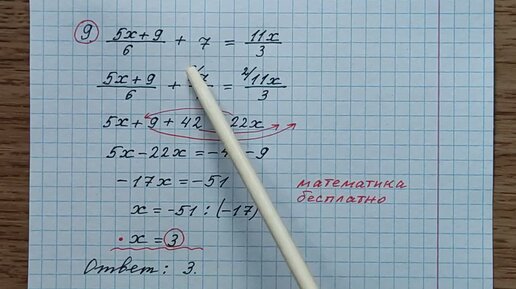 9 (5x+9)/6 + 7 = 11x/3
(5x+9)/6 + = 2/11x/3
5x + 9 + 42 22x
5x - 22x = -4 - 9
-17x = -51
математика
бесплатно
x = -51 : (-17)
x = 3
Ответ: 3.